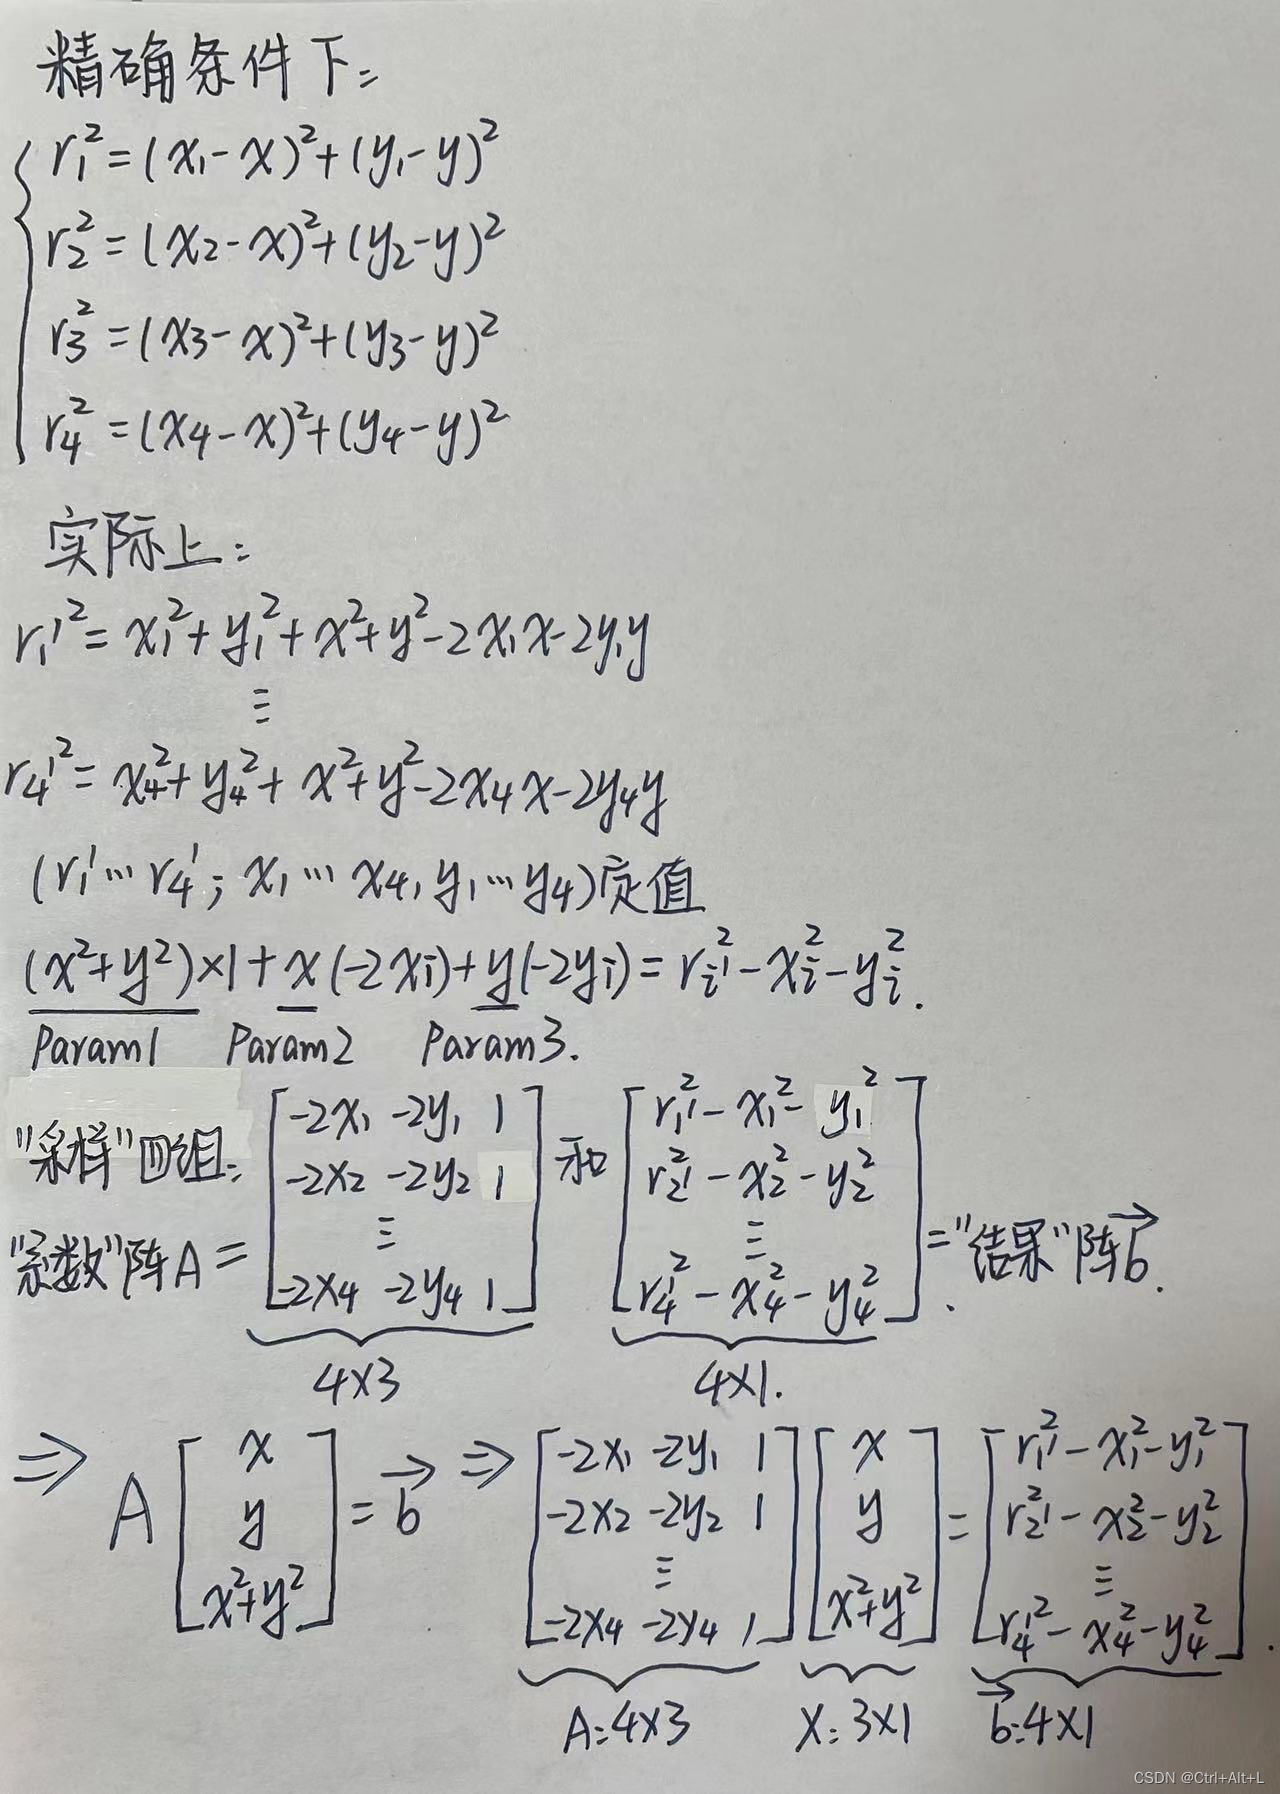 精确条件下:
r₁² = (x₁-x)²+(y₁-y)²
r₂² = (x₂-x)²+(y₂-y)²
r₃² = (x₃-x)²+(y₃-y)²
r₄² = (x₄-x)²+(y₄-y)²
实际上:
r₁'² = x₁²+y₁²+x²+y²-2x₁x-2y₁y
⋮
r₄'² = x₄²+y₄²+x²+y²-2x₄x-2y₄y
(r₁'…r₄'; x₁…x₄, y₁…y₄)定值
(x²+y²)×1+x(-2xᵢ)+y(-2yᵢ)=rᵢ'²-xᵢ²-yᵢ².
Param1 Param2 Param3.
"采样"四组: "系数"阵A = [-2x₁ -2y₁ 1; -2x₂ -2y₂ 1; ⋮; -2x₄ -2y₄ 1] 和 [r₁'²-x₁²-y₁²; r₂'²-x₂²-y₂²; ⋮; r₄'²-x₄²-y₄²] = "结果"阵b⃗.
4×3 4×1.
⇒ A [x; y; x²+y²] = b⃗ ⇒ [-2x₁ -2y₁ 1; -2x₂ -2y₂ 1; ⋮; -2x₄ -2y₄ 1] [x; y; x²+y²] = [r₁'²-x₁²-y₁²; r₂'²-x₂²-y₂²; ⋮; r₄'²-x₄²-y₄²].
A:4×3 X:3×1 b⃗:4×1
CSDN @Ctrl+Alt+L